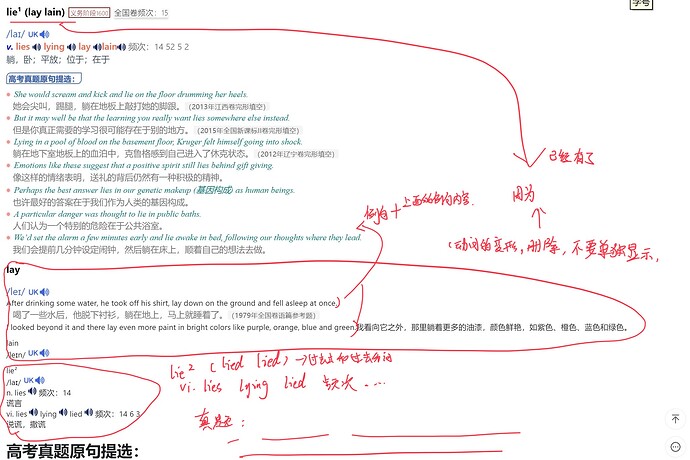 字号
lie¹ (lay lain) 义务阶段1600 全国卷频次：15
/laɪ/ UK
v. lies lying lay lain 频次：14 52 5 2
躺，卧；平放；位于；在于
高考真题原句提选：
She would scream and kick and lie on the floor drumming her heels.
她会尖叫，踢腿，躺在地板上敲打她的脚跟。 (2013年江西卷完形填空)
But it may well be that the learning you really want lies somewhere else instead.
但是你真正需要的学习很可能存在于别的地方。 (2015年全国新课标II卷完形填空)
Lying in a pool of blood on the basement floor, Kruger felt himself going into shock.
躺在地下室地板上的血泊中，克鲁格感到自己进入了休克状态。 (2012年辽宁卷完形填空)
Emotions like these suggest that a positive spirit still lies behind gift giving.
像这样的情绪表明，送礼的背后仍然有一种积极的精神。
Perhaps the best answer lies in our genetic makeup (基因构成) as human beings.
也许最好的答案在于我们作为人类的基因构成。
A particular danger was thought to lie in public baths.
人们认为一个特别的危险在于公共浴室。
We'd set the alarm a few minutes early and lie awake in bed, following our thoughts where they lead.
我们会提前几分钟设定闹钟，然后躺在床上，顺着自己的想法去做。
已经有了
因为
例句+上面的例句内容
(动词的变形，删除，不要单独显示，
lay
/leɪ/ UK
After drinking some water, he took off his shirt, lay down on the ground and fell asleep at once.
喝了一些水后，他脱下衬衫，躺在地上，马上就睡着了。 (1979年全国卷语篇参考题)
I looked beyond it and there lay even more paint in bright colors like purple, orange, blue and green.我看向它之外，那里躺着更多的油漆，颜色鲜艳，如紫色、橙色、蓝色和绿色。
lain
/leɪn/ UK
lie²
/laɪ/ UK
n. lies 频次：14
谎言
vi. lies lying lied 频次：14 6 3
说谎，撒谎
lie² (lied lied) →过去和过去分词
vi. lies lying lied 频次 ....
真题：
高考真题原句提选：